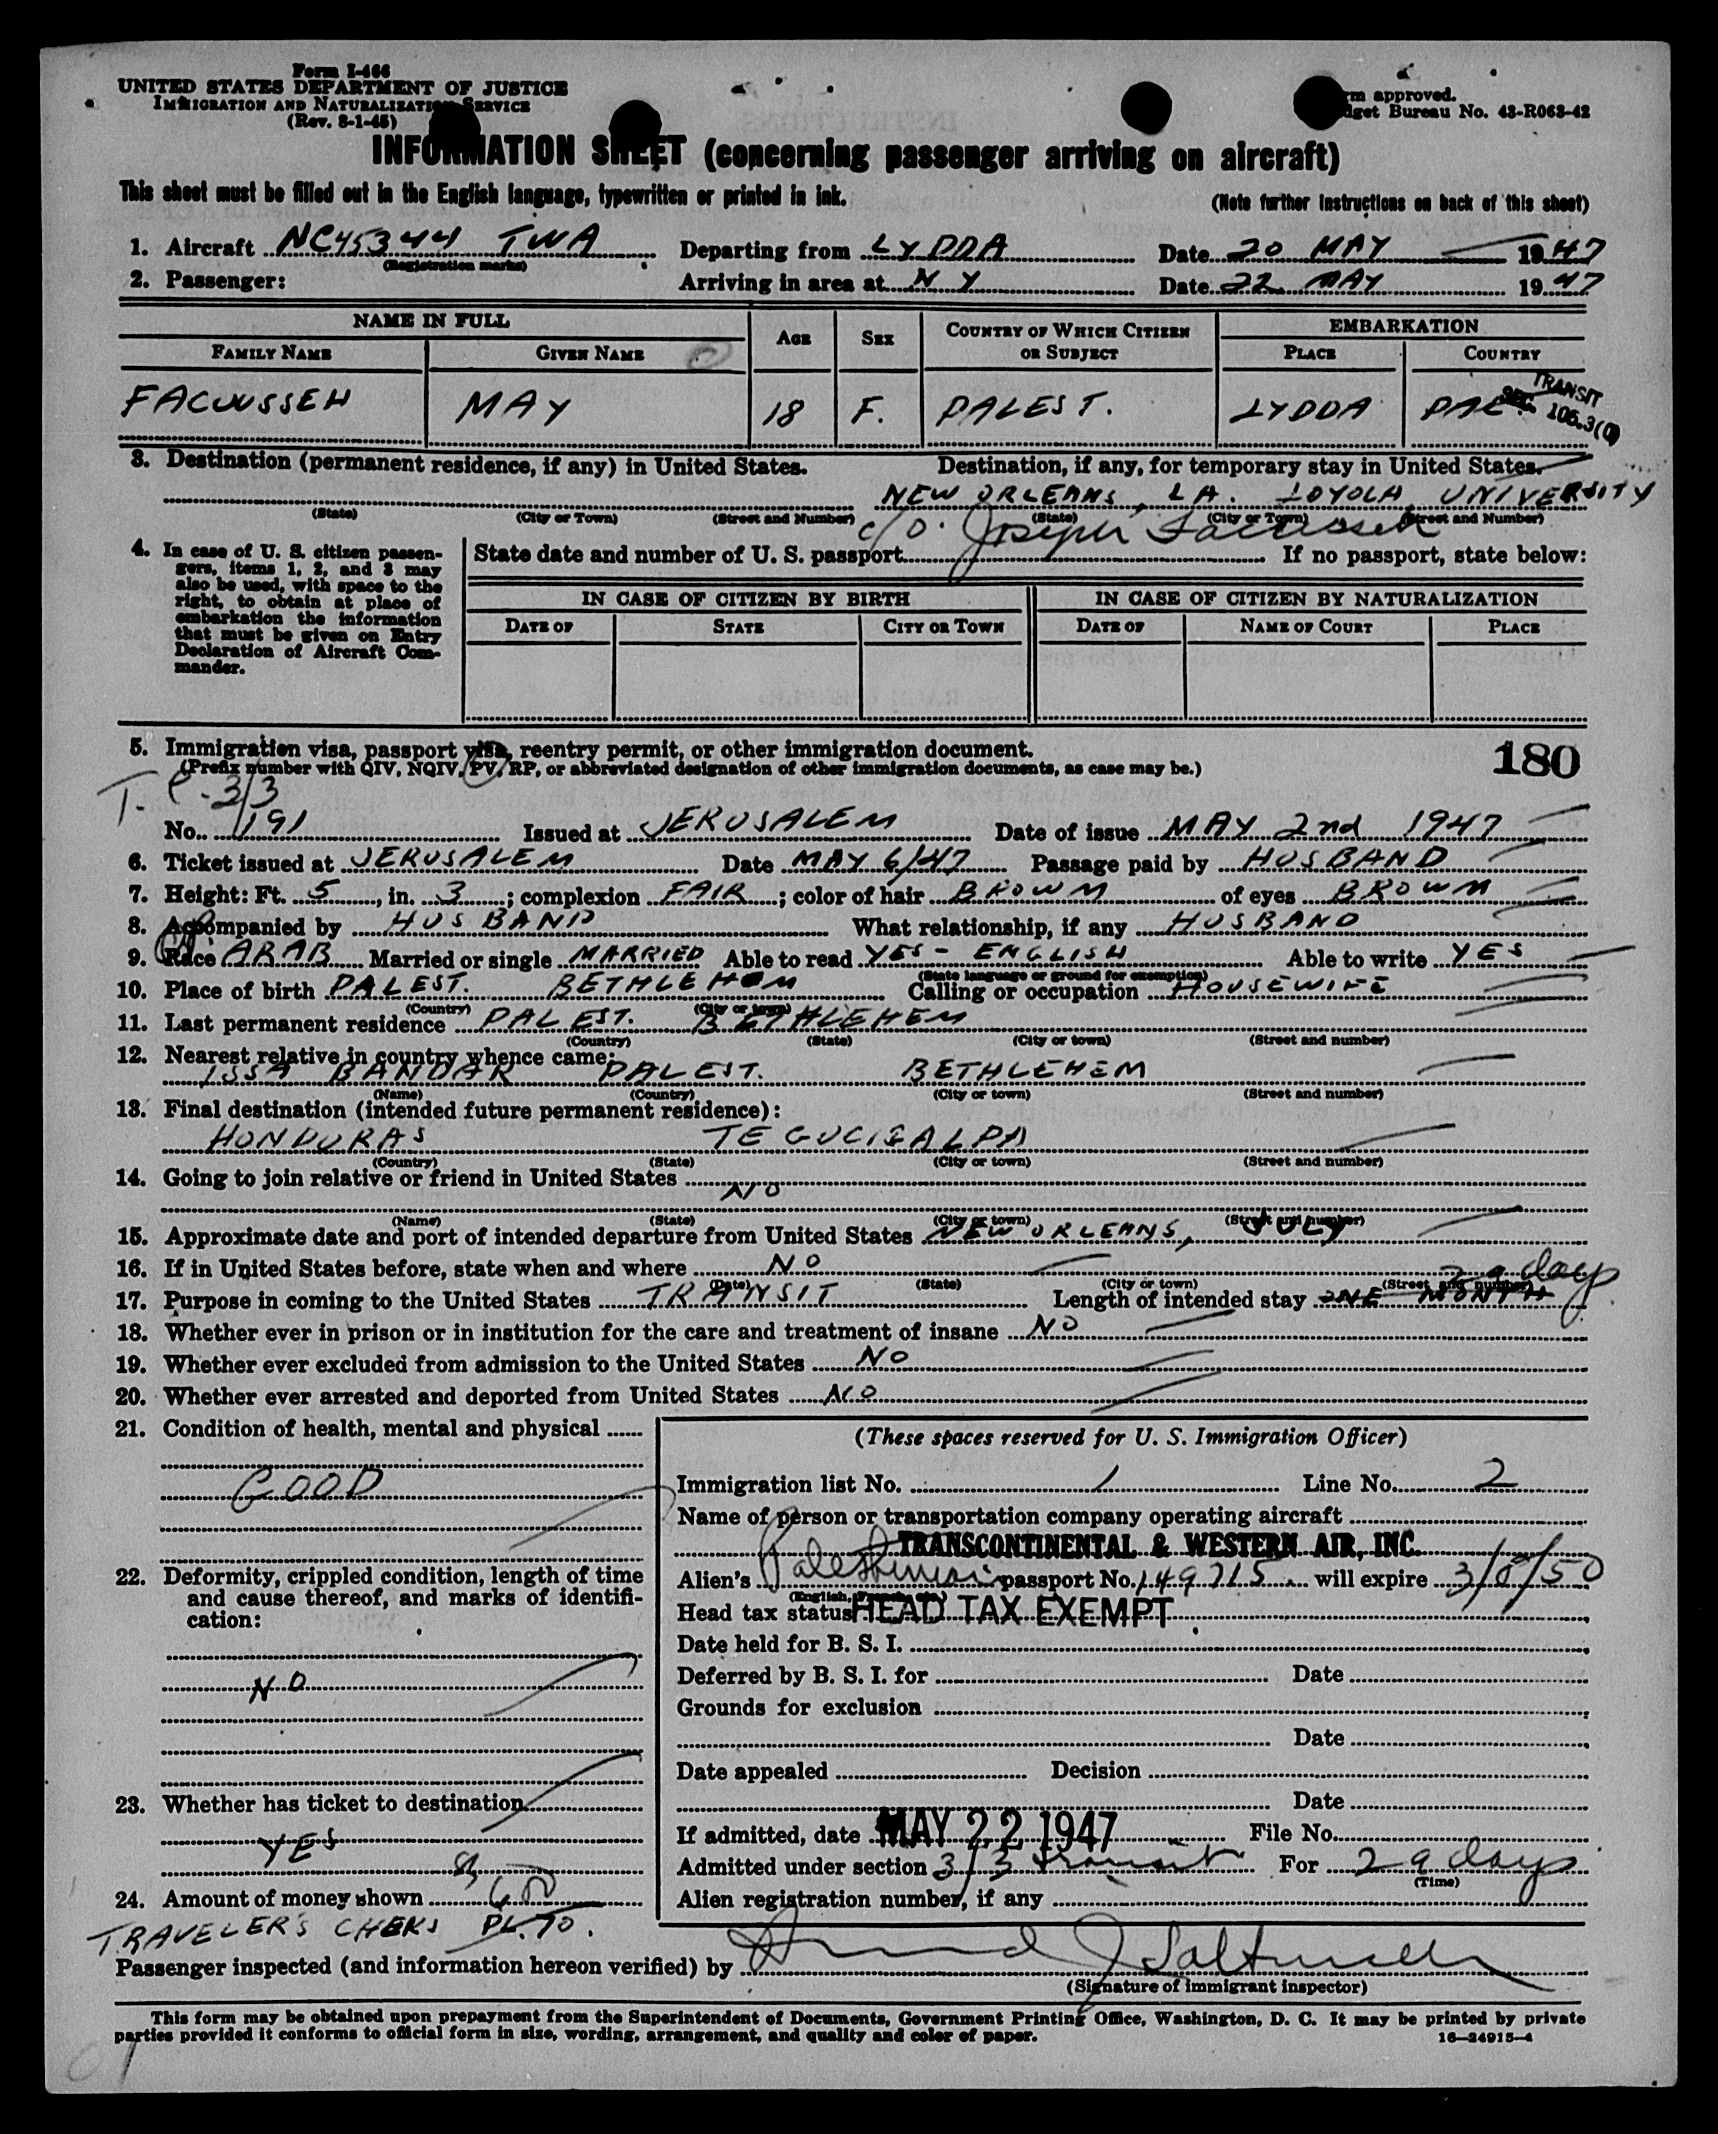 Form I-466
UNITED STATES DEPARTMENT OF JUSTICE
IMMIGRATION AND NATURALIZATION SERVICE
(Rev. 8-1-45)
rm approved.
dget Bureau No. 43-R063-42
INFORMATION SHEET (concerning passenger arriving on aircraft)
This sheet must be filled out in the English language, typewritten or printed in ink.
(Note further instructions on back of this sheet)
1. Aircraft NC45344 TWA Departing from LYDDA Date 20 MAY 1947
(Registration marks)
2. Passenger: Arriving in area at N Y Date 22 MAY 1947
NAME IN FULL
FAMILY NAME GIVEN NAME AGE SEX COUNTRY OF WHICH CITIZEN OR SUBJECT EMBARKATION PLACE COUNTRY
FACUUSSEH MAY 18 F. PALEST. LYDDA PAL.
TRANSIT
SEC. 106.3(0)
3. Destination (permanent residence, if any) in United States. Destination, if any, for temporary stay in United States.
NEW ORLEANS, LA. LOYOLA UNIVERSITY
(State) (City or Town) (Street and Number) (State) (City or Town) (Street and Number)
c/o. Joseph Facusseh
4. In case of U. S. citizen passen-
gers, items 1, 2, and 3 may
also be used, with space to the
right, to obtain at place of
embarkation the information
that must be given on Entry
Declaration of Aircraft Com-
mander.
State date and number of U. S. passport If no passport, state below:
IN CASE OF CITIZEN BY BIRTH IN CASE OF CITIZEN BY NATURALIZATION
DATE OF STATE CITY OR TOWN DATE OF NAME OF COURT PLACE
5. Immigration visa, passport visa, reentry permit, or other immigration document.
(Prefix number with QIV, NQIV, PV, RP, or abbreviated designation of other immigration documents, as case may be.)
180
T. C. 3/3
No. 191 Issued at JERUSALEM Date of issue MAY 2nd 1947
6. Ticket issued at JERUSALEM Date MAY 6/47 Passage paid by HUSBAND
7. Height: Ft. 5, in. 3; complexion FAIR; color of hair BROWN of eyes BROWN
8. Accompanied by HUSBAND What relationship, if any HUSBAND
9. Race ARAB Married or single MARRIED Able to read YES - ENGLISH Able to write YES
(State language or ground for exemption)
10. Place of birth PALEST. BETHLEHEM Calling or occupation HOUSEWIFE
(Country) (City or town)
11. Last permanent residence PALEST. BETHLEHEM
(Country) (State) (City or town) (Street and number)
12. Nearest relative in country whence came:
ISSA BANDAR PALEST. BETHLEHEM
(Name) (Country) (City or town) (Street and number)
13. Final destination (intended future permanent residence):
HONDURAS TEGUCIGALPA
(Country) (State) (City or town) (Street and number)
14. Going to join relative or friend in United States
NO
(Name) (State) (City or town) (Street and number)
15. Approximate date and port of intended departure from United States NEW ORLEANS, JULY
16. If in United States before, state when and where NO
(Date) (State) (City or town) (Street and number)
29 days
17. Purpose in coming to the United States TRANSIT Length of intended stay ONE MONTH
18. Whether ever in prison or in institution for the care and treatment of insane NO
19. Whether ever excluded from admission to the United States NO
20. Whether ever arrested and deported from United States NO
21. Condition of health, mental and physical
GOOD
22. Deformity, crippled condition, length of time
and cause thereof, and marks of identifi-
cation:
NO
23. Whether has ticket to destination
YES
24. Amount of money shown $600
TRAVELER'S CHEKS
(These spaces reserved for U. S. Immigration Officer)
Immigration list No. 1 Line No. 2
Name of person or transportation company operating aircraft
TRANSCONTINENTAL & WESTERN AIR, INC.
Alien's Palestinian passport No. 149715 will expire 3/8/50
Head tax status HEAD TAX EXEMPT
Date held for B. S. I.
Deferred by B. S. I. for Date
Grounds for exclusion
Date
Date appealed Decision
Date
If admitted, date MAY 22 1947 File No.
Admitted under section 3/3 transit For 29 days
(Time)
Alien registration number, if any
Passenger inspected (and information hereon verified) by
(Signature of immigrant inspector)
This form may be obtained upon prepayment from the Superintendent of Documents, Government Printing Office, Washington, D. C. It may be printed by private
parties provided it conforms to official form in size, wording, arrangement, and quality and color of paper.
16—24915-4